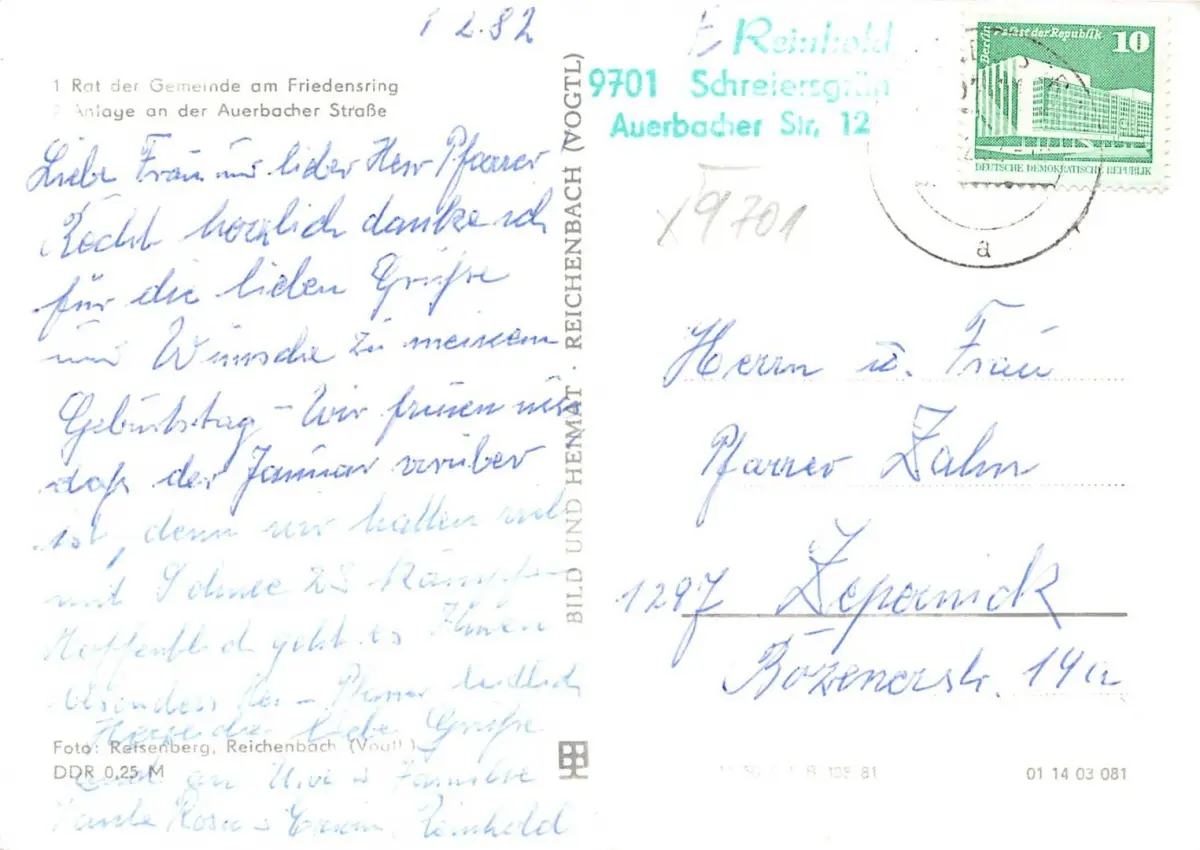 1 2.82
1 Rat der Gemeinde am Friedensring
2 Anlage an der Auerbacher Straße
Liebe Frau und lieber Herr Pfarrer
Recht herzlich danke ich
für die lieben Grüße
und Wünsche zu meinem
Geburtstag – Wir freuen uns
daß der Januar vorüber
ist, denn wir hatten viel
mit Schnee zu kämpfen
Hoffentlich geht es Ihnen
besonders Pfarrer leidlich
liebe Grüße
Foto: Reisenberg, Reichenbach (Vogtl.)
DDR 0,25 M
an Uwe u Familie
Reinhold
BILD UND HEIMAT · REICHENBACH (VOGTL)
E Reinhold
9701 Schreiersgrün
Auerbacher Str. 12
Berlin Palast der Republik 10
DEUTSCHE DEMOKRATISCHE REPUBLIK
a
x 9701
Herrn u. Frau
Pfarrer Zahn
1297 Zepernick
Bozenerstr. 19a
01 14 03 081